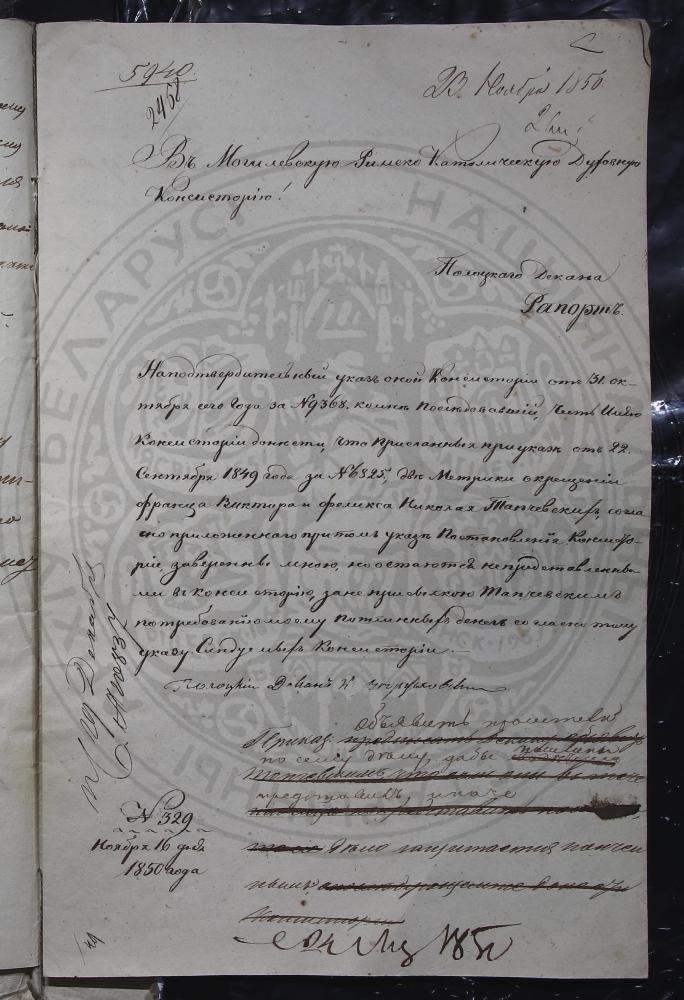 5940.
2468
23 Ноября 1850.
Въ Могилевскую Римско Католическую Духовную
Консисторію!
Полоцкаго Декана
Рапортъ.
На подтвердительный указъ оной Консисторіи отъ 31. ок-
тября сего года за № 9368. ко мнѣ послѣдовавшій, честь имѣю
Консисторіи донести, что присланныя при указѣ отъ 22.
Сентября 1849 года за № 6325, двѣ Метрики о крещеніи
Франца Виктора и Феликса Николая Тапчевскихъ, согла
сно приложеннаго при томъ указѣ Постановленія Консисто-
ріи, заверенные мною, но остаются не представленны-
ми въ Консисторію, за не присылкою Тапчевскимъ
по требованію моему пошлинныхъ денегъ согласно тому
указу слѣдуемыхъ Консисторіи.
Полоцкій Деканъ К.
Объявить просителю
Приказ
по сему дѣлу, дабы пошлины
представилъ, иначе
дѣло
19 Декабря
№ 10837
№ 329
Ноября 16 дня
1850 года